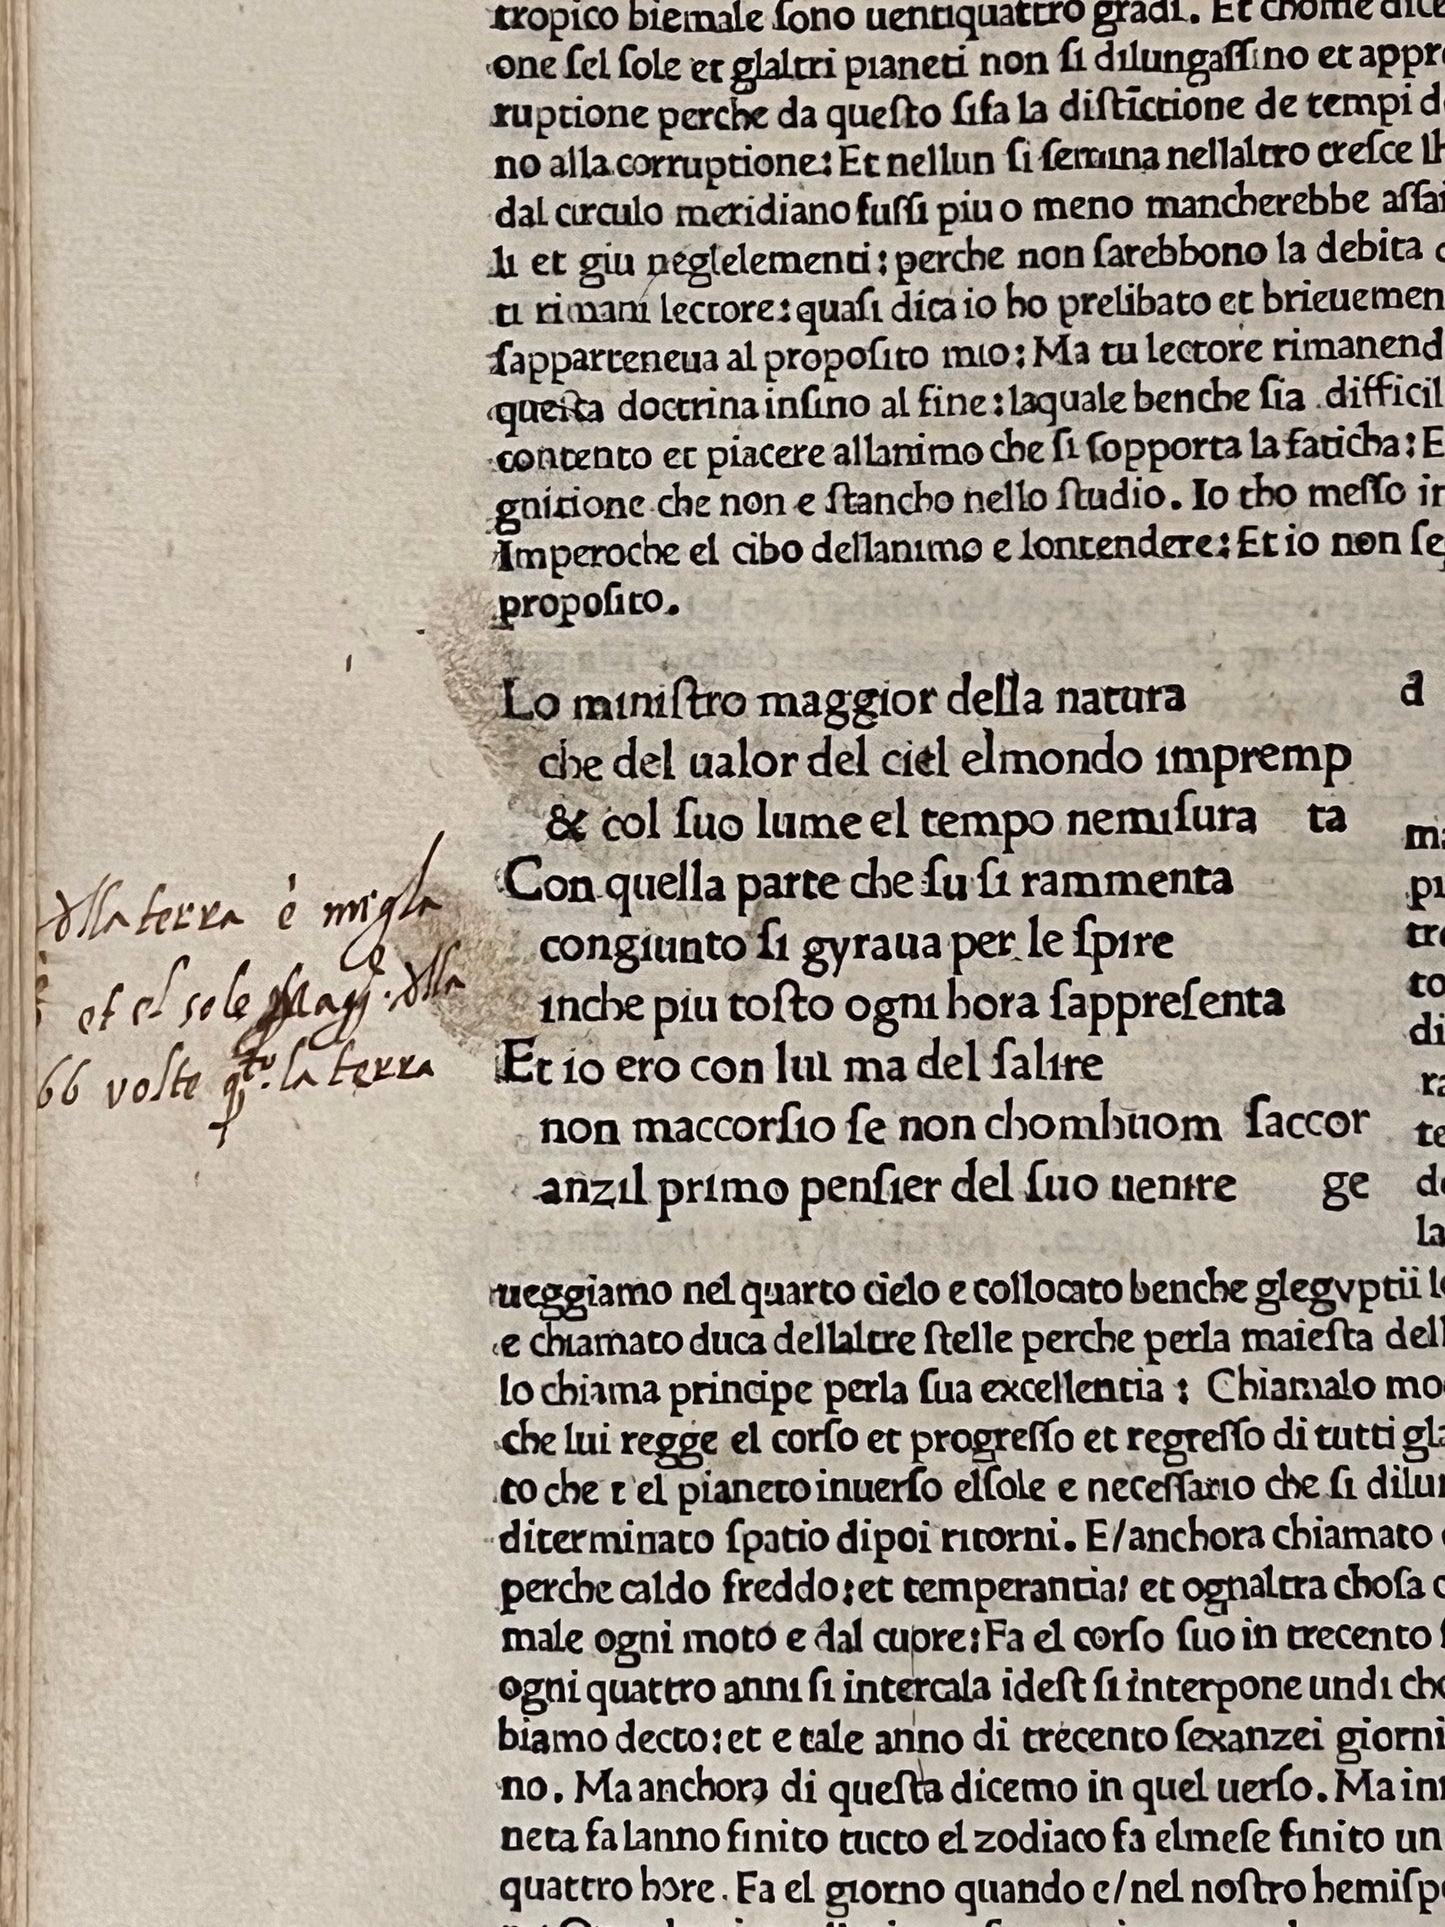 tropico biemale ſono uentiquattro gradi. Et chome dice
one ſel ſole et glaltri pianeti non ſi dilungaſſino et appr
ruptione perche da queſto ſifa la diſtīctione de tempi d
no alla corruptione: Et nellun ſi ſemina nellaltro creſce lh
dal circulo meridiano fuſſi piu o meno mancherebbe aſſai
li et giu neglelementi: perche non ſarebbono la debita
ti rimani lectore: quaſi dica io ho prelibato et brieuemen
ſapparteneua al propoſito mio: Ma tu lectore rimanend
queſta doctrina inſino al fine: laquale benche ſia difficil
contento et piacere allanimo che ſi ſopporta la faticha: E
gnitione che non e ſtancho nello ſtudio. Io tho meſſo in
Imperoche el cibo dellanimo e lontendere: Et io non ſe
propoſito.
Lo miniſtro maggior della natura
che del ualor del ciel elmondo impremp
& col ſuo lume el tempo nemiſura ta
Con quella parte che ſu ſi rammenta
congiunto ſi gyraua per le ſpire
inche piu toſto ogni hora ſappreſenta
Et io ero con lui ma del ſalire
non maccorſio ſe non chomhuom ſaccor
anzil primo penſier del ſuo uenire ge
d
ma
pi
tre
to
di
ra
te
de
la
della terra è migla
et el sole Magg. della
66 volte la terra
ueggiamo nel quarto cielo e collocato benche glegyptii l
e chiamato duca dellaltre ſtelle perche perla maieſta dell
lo chiama principe perla ſua excellentia: Chiamalo mo
che lui regge el corſo et progreſſo et regreſſo di tutti gla
to che t el pianeto inuerſo elſole e neceſſario che ſi dilun
diterminato ſpatio dipoi ritorni. E/anchora chiamato
perche caldo freddo: et temperantia: et ognaltra choſa
male ogni moto e dal cuore: Fa el corſo ſuo in trecento ſ
ogni quattro anni ſi intercala ideſt ſi interpone undi cho
biamo decto: et e tale anno di trecento ſexanzei giorni
no. Ma anchora di queſta dicemo in quel uerſo. Ma in
neta fa lanno finito tucto el zodiaco fa elmeſe finito un
quattro hore. Fa el giorno quando e/nel noſtro hemiſp